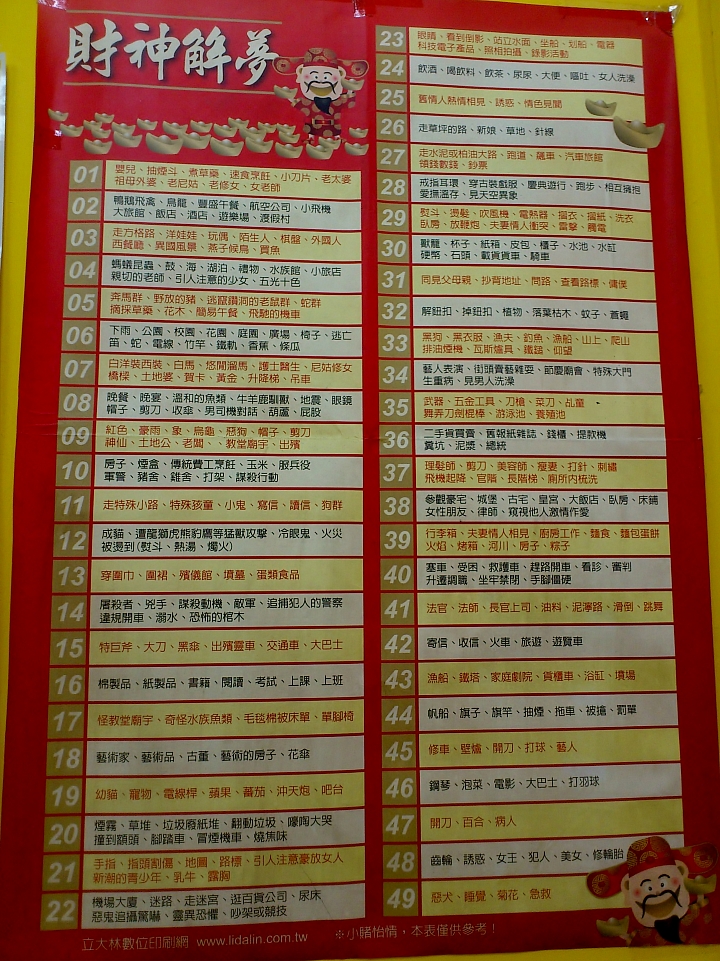 財神解夢
01
嬰兒、抽煙斗、煮草藥、速食烹飪、小刀片、老太婆
祖母外婆、老尼姑、老修女、女老師
02
鴨鵝飛禽、鳥龍、豐盛午餐、航空公司、小飛機
大旅館、飯店、酒店、遊樂場、渡假村
03
走方格路、洋娃娃、玩偶、陌生人、棋盤、外國人
西餐廳、異國風景、燕子候鳥、買魚
04
螞蟻昆蟲、鼓、海、湖泊、禮物、水族館、小旅店
親切的老師、引人注意的少女、五光十色
05
奔馬群、野放的豬、逃竄鑽洞的老鼠群、蛇群
摘採草藥、花木、簡易午餐、飛馳的機車
06
下雨、公園、校園、花園、庭園、廣場、椅子、逃亡
笛、蛇、電線、竹竿、鐵軌、香蕉、條瓜
07
白洋裝西裝、白馬、悠閒溜馬、護士醫生、尼姑修女
橋樑、土地婆、賀卡、黃金、升降梯、吊車
08
晚餐、晚宴、溫和的魚類、牛羊鹿馴獸、地震、眼鏡
帽子、剪刀、收傘、男司機對話、葫蘆、屁股
09
紅色、豪雨、象、烏龜、惡狗、帽子、剪刀
神仙、土地公、老闆、、教堂廟宇、出殯
10
房子、煙盒、傳統費工烹飪、玉米、服兵役
軍警、豬舍、雞舍、打架、謀殺行動
11
走特殊小路、特殊孩童、小鬼、寫信、讀信、狗群
12
成貓、遭龍獅虎熊豹鷹等猛獸攻擊、冷眼鬼、火災
被燙到(熨斗、熱湯、燭火)
13
穿圍巾、圍裙、殯儀館、墳墓、蛋類食品
14
屠殺者、兇手、謀殺動機、敵軍、追捕犯人的警察
違規開車、溺水、恐怖的棺木
15
特巨斧、大刀、黑傘、出殯靈車、交通車、大巴士
16
棉製品、紙製品、書籍、閱讀、考試、上課、上班
17
怪教堂廟宇、奇怪水族魚類、毛毯棉被床單、單腳椅
18
藝術家、藝術品、古董、藝術的房子、花傘
19
幼貓、寵物、電線桿、蘋果、蕃茄、沖天炮、吧台
20
煙霧、草堆、垃圾廢紙堆、翻動垃圾、嚎啕大哭
撞到額頭、腳踏車、冒煙機車、燒焦味
21
手指、指頭割傷、地圖、路標、引人注意豪放女人
新潮的青少年、乳牛、露胸
22
機場大廈、迷路、走迷宮、逛百貨公司、尿床
惡鬼追攝驚嚇、靈異恐懼、吵架或競技
23
眼睛、看到倒影、站立水面、坐船、划船、電器
科技電子產品、照相拍攝、錄影活動
24
飲酒、喝飲料、飲茶、尿尿、大便、嘔吐、女人洗澡
25
舊情人熱情相見、誘惑、情色見聞
26
走草坪的路、新娘、草地、針線
27
走水泥或柏油大路、跑道、飆車、汽車旅館
領錢數錢、鈔票
28
戒指耳環、穿古裝戲服、慶典遊行、跑步、相互擁抱
愛撫溫存、見天空異象
29
熨斗、燙髮、吹風機、電熱器、摺衣、摺紙、洗衣
臥房、放鞭炮、夫妻情人衝突、雷擊、觸電
30
獸籠、杯子、紙箱、皮包、櫃子、水池、水缸
硬幣、石頭、載貨貨車、騎車
31
同見父母親、抄背地址、問路、查看路標、傭僕
32
解鈕扣、掉鈕扣、植物、落葉枯木、蚊子、蒼蠅
33
黑狗、黑衣服、漁夫、釣魚、漁船、山上、爬山
排油煙機、瓦斯爐具、鐵鎚、仰望
34
藝人表演、街頭賣藝雜耍、節慶廟會、特殊大門
生重病、見男人洗澡
35
武器、五金工具、刀槍、菜刀、乩童
舞弄刀劍棍棒、游泳池、養殖池
36
二手貨買賣、舊報紙雜誌、錢櫃、提款機
糞坑、泥漿、總統
37
理髮師、剪刀、美容師、瘦妻、打針、刺繡
飛機起降、官階、長階梯、廁所內梳洗
38
參觀豪宅、城堡、古宅、皇宮、大飯店、臥房、床鋪
女性朋友、律師、窺視他人激情作愛
39
行李箱、夫妻情人相見、廚房工作、麵食、麵包蛋餅
火焰、烤箱、河川、房子、粽子
40
塞車、受困、救護車、趕路開車、看診、審判
升遷調職、坐牢禁閉、手腳僵硬
41
法官、法師、長官上司、油料、泥濘路、滑倒、跳舞
42
寄信、收信、火車、旅遊、遊覽車
43
漁船、鐵塔、家庭劇院、貨櫃車、浴缸、墳場
44
帆船、旗子、旗竿、抽煙、拖車、被搶、罰單
45
修車、壁爐、開刀、打球、藝人
46
鋼琴、泡菜、電影、大巴士、打羽球
47
開刀、百合、病人
48
齒輪、誘惑、女王、犯人、美女、修輪胎
49
惡犬、睡覺、菊花、急救
立大林數位印刷網 www.lidalin.com.tw
※小賭怡情，本表僅供參考！